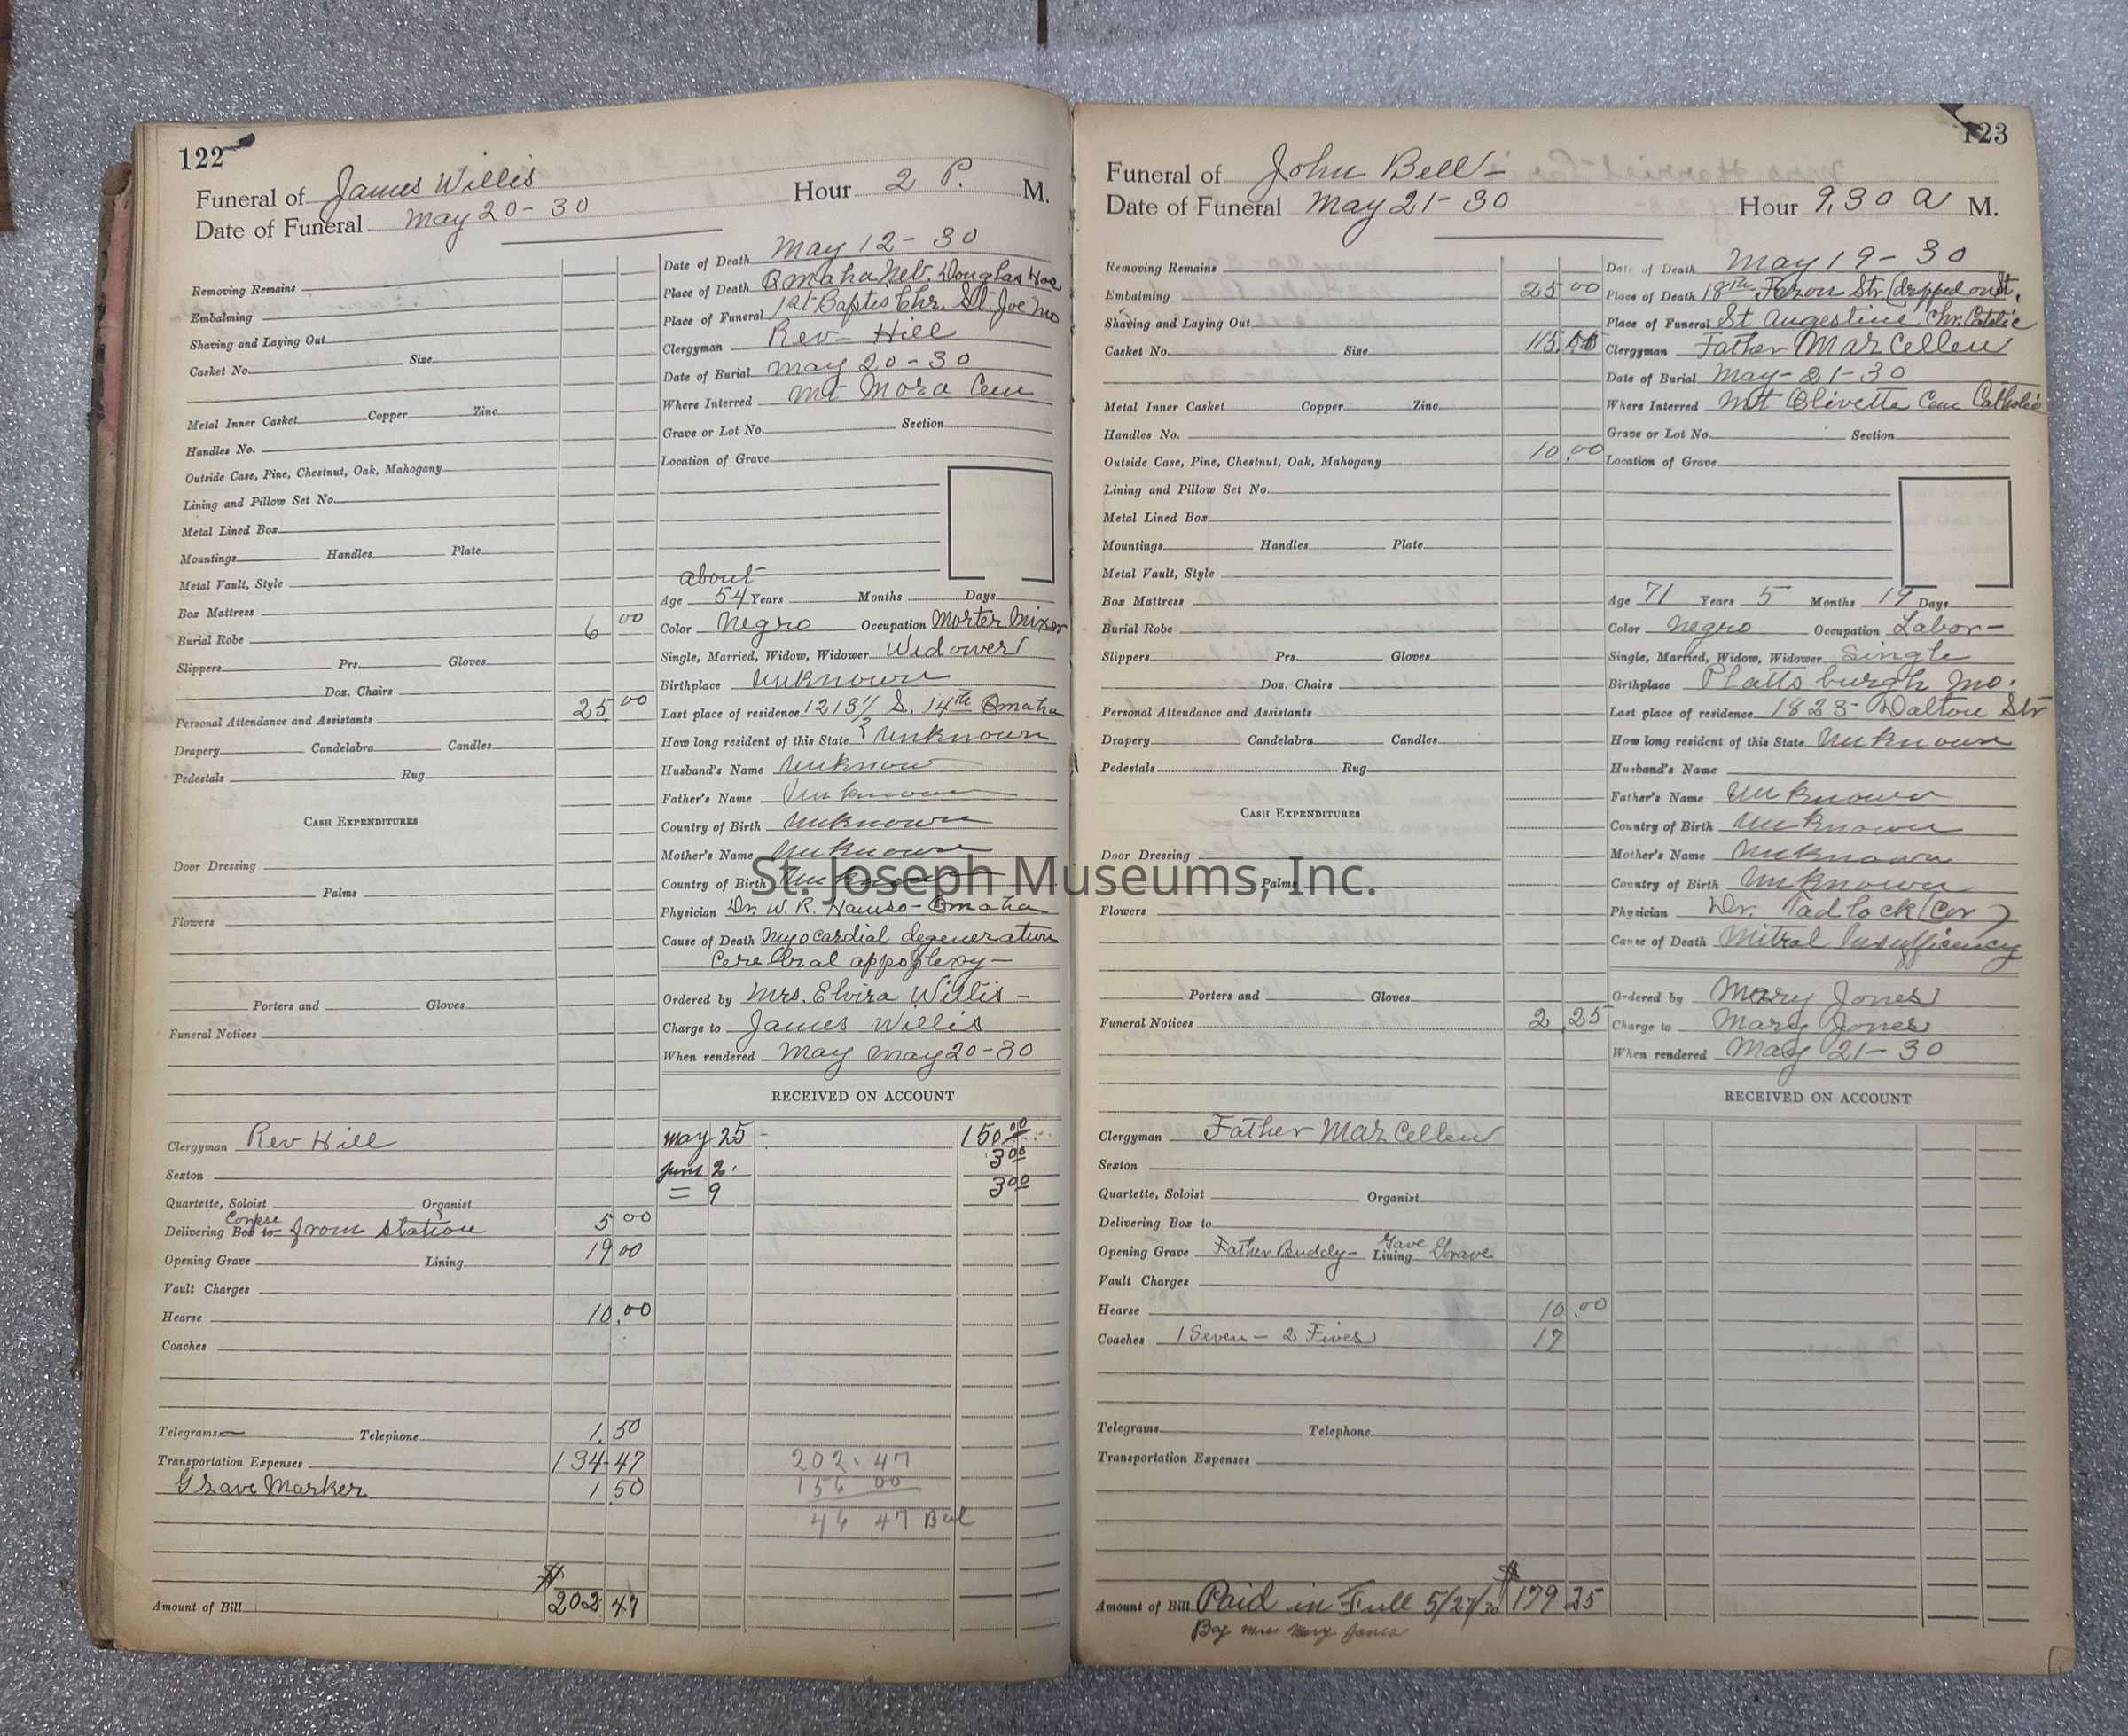 122
Funeral of James Willis Hour 2 P. M.
Date of Funeral May 20-30
Removing Remains
Embalming
Shaving and Laying Out
Casket No. Size
Metal Inner Casket Copper Zinc
Handles No.
Outside Case, Pine, Chestnut, Oak, Mahogany
Lining and Pillow Set No.
Metal Lined Box
Mountings Handles Plate
Metal Vault, Style
Box Mattress
Burial Robe 6 00
Slippers Prs. Gloves
Doz. Chairs
Personal Attendance and Assistants 25.00
Drapery Candelabra Candles
Pedestals Rug
CASH EXPENDITURES
Door Dressing
Palms
Flowers
Porters and Gloves
Funeral Notices
Clergyman Rev Hill
Sexton
Quartette, Soloist Organist
Corpse
Delivering Box to from station 5 00
Opening Grave Lining 19 00
Vault Charges
Hearse 10.00
Coaches
Telegrams Telephone 1.50
Transportation Expenses 134-47
Grave Marker 1 50
Amount of Bill $202 47
Date of Death May 12-30
Place of Death Omaha Neb. Douglas Hos
Place of Funeral 1st Baptis Chr. St. Joe Mo
Clergyman Rev- Hill
Date of Burial May 20-30
Where Interred Mt Mora Cem
Grave or Lot No. Section
Location of Grave
about
Age 54 Years Months Days
Color Negro Occupation Morter Mixer
Single, Married, Widow, Widower Widower
Birthplace Unknown
Last place of residence S. 14th Omaha
How long resident of this State ? Unknown
Husband's Name Unknow
Father's Name Unknown
Country of Birth Unknown
Mother's Name Unknown
Country of Birth Unknown
Physician Dr. W. R. Omaha
Cause of Death Myocardial degeneration
Cerebral appoplexy-
Ordered by Mrs. Elvira Willis-
Charge to James Willis
When rendered May May 20-30
RECEIVED ON ACCOUNT
May 25 - 150.00
June 2. 3 00
= 9 3 00
202.47
156 00
46 47 Bal
123
Funeral of John Bell-
Date of Funeral May 21-30 Hour 9.30 A M.
Removing Remains
Embalming 25 00
Shaving and Laying Out
Casket No. Size 115.00
Metal Inner Casket Copper Zinc
Handles No.
Outside Case, Pine, Chestnut, Oak, Mahogany 10.00
Lining and Pillow Set No.
Metal Lined Box
Mountings Handles Plate
Metal Vault, Style
Box Mattress
Burial Robe
Slippers Prs. Gloves
Doz. Chairs
Personal Attendance and Assistants
Drapery Candelabra Candles
Pedestals Rug
CASH EXPENDITURES
Door Dressing
Palms
Flowers
Porters and Gloves
Funeral Notices 2.25
Clergyman Father Marcellen
Sexton
Quartette, Soloist Organist
Delivering Box to
Opening Grave Father Buddy- Gave Lining Grave
Vault Charges
Hearse 10.00
Coaches 1 Seven - 2 Fives 17
Telegrams Telephone
Transportation Expenses
Amount of Bill Paid in Full 5/27/30 $179 25
By Mrs Mary Jones
Date of Death May 19-30
Place of Death 18th Faron Str (dropped on St.
Place of Funeral St Augestine Chr. Catolic
Clergyman Father Marcellen
Date of Burial May-21-30
Where Interred Mt Olivette Cem Catholic
Grave or Lot No. Section
Location of Grave
Age 71 Years 5 Months 19 Days
Color Negro Occupation Labor-
Single, Married, Widow, Widower Single
Birthplace Plattsburgh Mo.
Last place of residence 1823- Dalton Str
How long resident of this State Unknown
Husband's Name
Father's Name Unknown
Country of Birth Unknown
Mother's Name Unknown
Country of Birth Unknown
Physician Dr. Tadlock (Cor)
Cause of Death Mitral Insufficiency
Ordered by Mary Jones
Charge to Mary Jones
When rendered May 21-30
RECEIVED ON ACCOUNT
St. Joseph Museums, Inc.